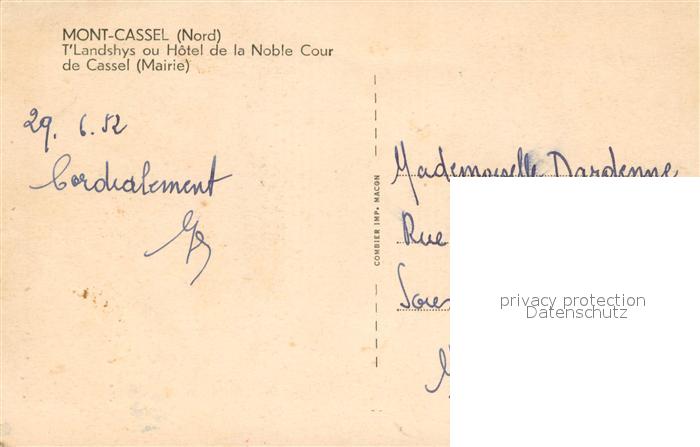 MONT-CASSEL (Nord)
T'Landshys ou Hôtel de la Noble Cour
de Cassel (Mairie)
29. 6. 52
Cordialement
COMBIER IMP. MACON
Mademoiselle Dardenne
Rue
privacy protection
Datenschutz